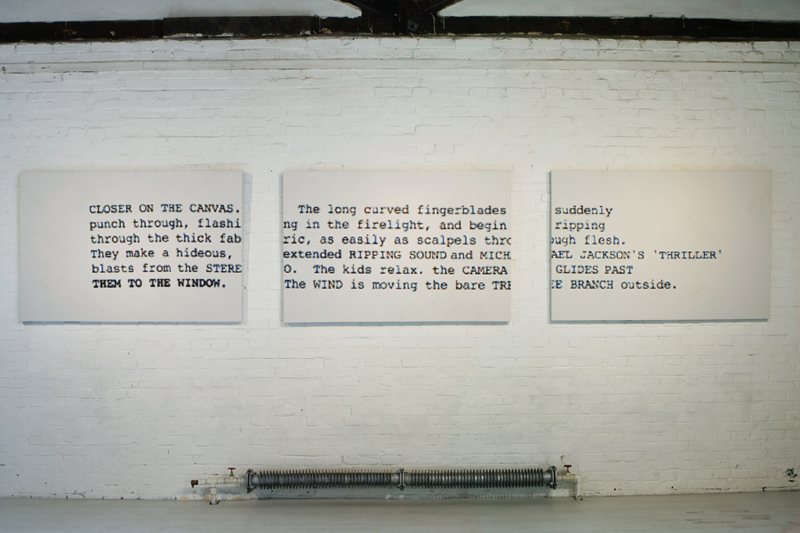 CLOSER ON THE CANVAS. The long curved fingerblades suddenly
punch through, flashing in the firelight, and begin ripping
through the thick fabric, as easily as scalpels through flesh.
They make a hideous, extended RIPPING SOUND and MICHAEL JACKSON'S 'THRILLER'
blasts from the STEREO. The kids relax. the CAMERA GLIDES PAST
THEM TO THE WINDOW. The WIND is moving the bare TREE BRANCH outside.